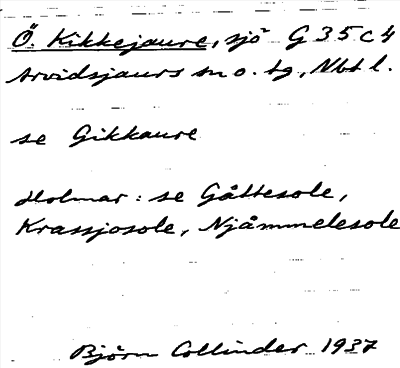 Ö. Kikkejaure, sjö G 35 c 4
Arvidsjaurs sn o. tg, Nbt l.
se Gikkaure
Holmar: se Gåttesole,
Krassjosole, Njåmmelesole
Björn Collinder 1937